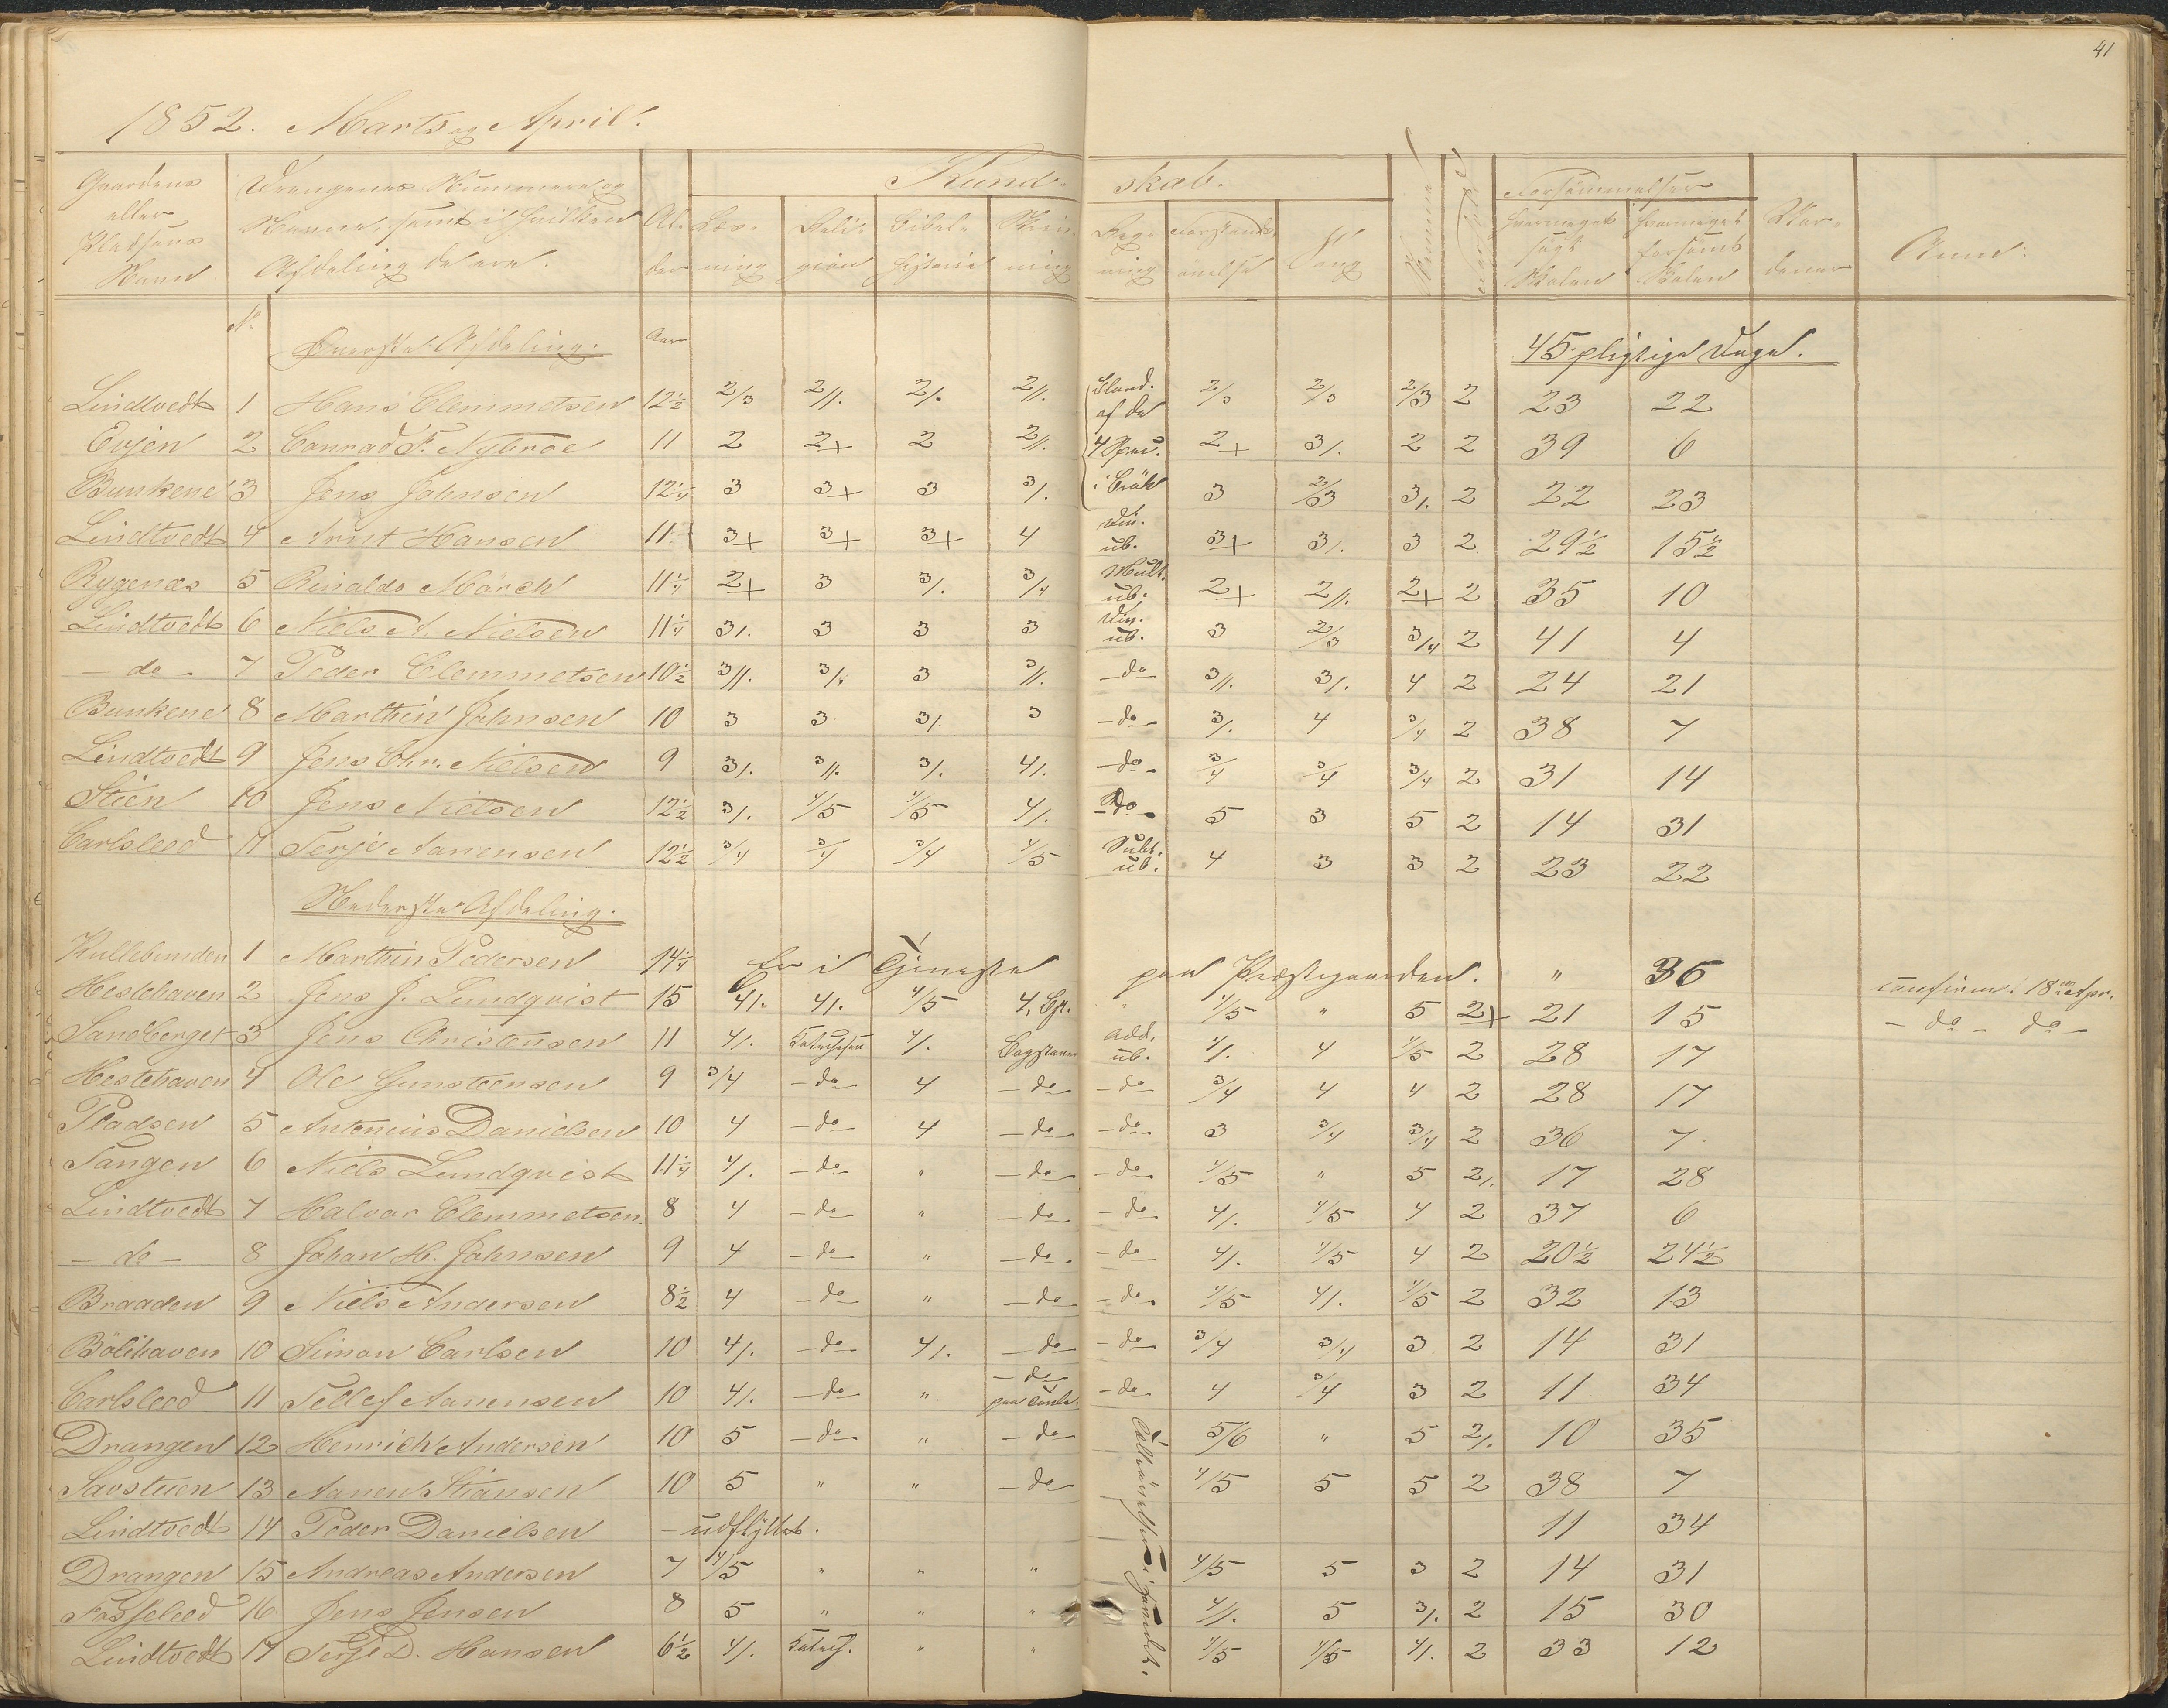 41
1852. Marts og April.
Gaardens eller Pladsens Navn | Drengenes Nummere og Navne, samt i hvilken Afdeling de ere. | Alder | Kundskab. | Forsømmelser | Anm:
Læsning | Religion | Bibelhistorie | Skrivning | Regning | Forstandsøvelse | Sang | Nemme | hvormeget søgt Skolen | hvormeget forsømt Skolen
No | Øverste Afdeling. | Aar | 45 pligtige Dage.
Lindtvedt 1 Hans Clemmetsen 12½ 2/3 2//. 2/. 2//. Bland. af de 4 Spec. i Bråk 2/3 2/3 2/3 2 23 22
Evjen 2 Conrad F. Nyberoe 11 2 2+ 2 2//. 2+ 3/. 2 2 39 6
Bunkene 3 Jens Johnsen 12¼ 3 3+ 3 3/. 3 2/3 3/. 2 22 23
Lindtvedt 4 Arnt Hansen 11 3+ 3+ 3+ 4 Div. ub. 3+ 3/. 3 2 29½ 15½
Rygenæs 5 Rinaldo March 11¼ 2+ 3 3/. 3/4 Mult. ub. 2+ 2//. 2+ 2 35 10
Lindtvedt 6 Niels A. Nielsen 11¼ 3/. 3 3 3 Div. ub. 3 2/3 3/4 2 41 4
- do - 7 Peder Clemmetsen 10½ 3//. 3/. 3 3//. - do - 3//. 3/. 4 2 24 21
Bunkene 8 Marthin Johnsen 10 3 3 3/. 3 - do - 3/. 4 3/4 2 38 7
Lindtvedt 9 Jens Chr. Nielsen 9 3/. 3//. 3/. 4/. - do - 3/4 3/4 3/4 2 31 14
Stien 10 Jens Nielsen 12½ 3/. 4/5 4/5 4/. - do - 5 3 5 2 14 31
Carlsleed 11 Terje Aanensen 12½ 3/4 3/4 3/4 4/5 Subt. ub. 4 3 3 2 23 22
Nederste Afdeling.
Kullebunden 1 Marthin Pedersen 14¼ Er i Tjeneste paa Præstegaarden. " 36 confirm. 18de Apr.
Heslehaven 2 Jens J. Lundqvist 15 4/. 4/. 4/5 4. " 4/5 " 5 2+ 21 15 - do - do -
Sandberget 3 Jens Christensen 11 4/. 4/. Bogstaver add. ub. 4/. 4 4/5 2 28 17
Hestehaven 4 Ole Gunsteensen 9 3/4 - do - 4 - do - - do - 3/4 4 4 2 28 17
Pladsen 5 Antonius Danielsen 10 4 - do - 4 - do - - do - 3 3/4 3/4 2 36 7
Tangen 6 Niels Lundqvist 11¼ 4/. - do - " - do - - do - 4/5 " 5 2/. 17 28
Lindtvedt 7 Halvor Clemmetsen 8 4 - do - " - do - - do - 4/. 4/5 4 2 37 6
- do - 8 Johan H. Johnsen 9 4 - do - " - do - - do - 4/. 4/5 4 2 20½ 24½
Braaden 9 Niels Andersen 8½ 4 - do - " - do - - do - 4/5 4/. 4/5 2 32 13
Bölihaven 10 Simon Carlsen 10 4/. - do - 4/. - do - - do - 3/4 3/4 3 2 14 31
Carlsleed 11 Tellef Aanensen 10 4/. - do - " - do - paa Tavle - do - 4 3/4 3 2 11 34
Drangen 12 Henrich Andersen 10 5 - do - " - do - 5/6 " 5 2/. 10 35
Savstuen 13 Aanen Stiansen 10 5 " " - do - 4/5 5 5 2 38 7
Lindtvedt 14 Peder Danielsen - udflyttet. 11 34
Drangen 15 Andreas Andersen 7 4/5 " " " 4/5 5 3 2 14 31
Fosseleed 16 Jens Jensen 8 5 " " " 4/. 5 3/. 2 15 30
Lindtvedt 17 Terje D. Hansen 6½ 4/. " " 4/5 4/5 4/. 2 33 12